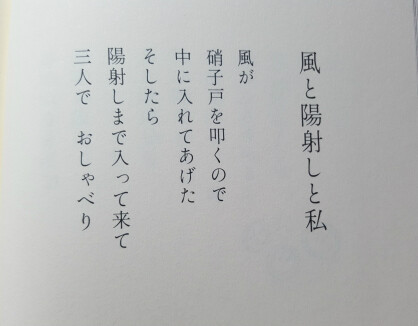 風と陽射しと私
風が
硝子戸を叩くので
中に入れてあげた
そしたら
陽射しまで入って来て
三人で　おしゃべり